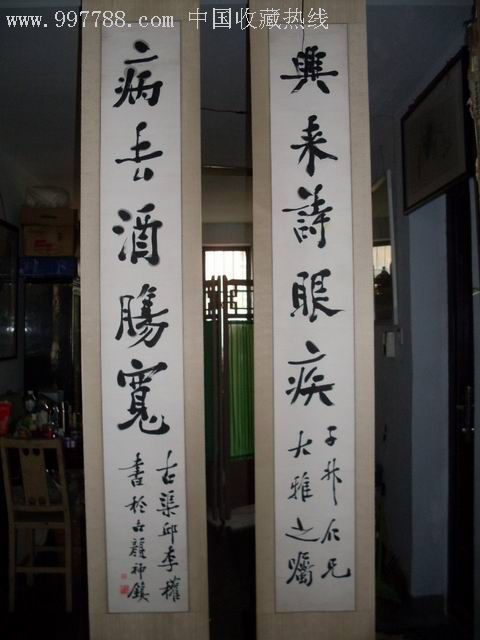 www.997788.com 中国收藏热线
興来詩眼疾
子升仁兄
大雅之囑
病去酒腸寬
古渠邱李權
書於古龍神鎮